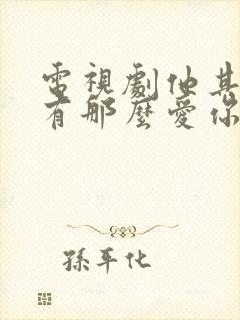 電視劇他其
有那麼愛你
孫平化